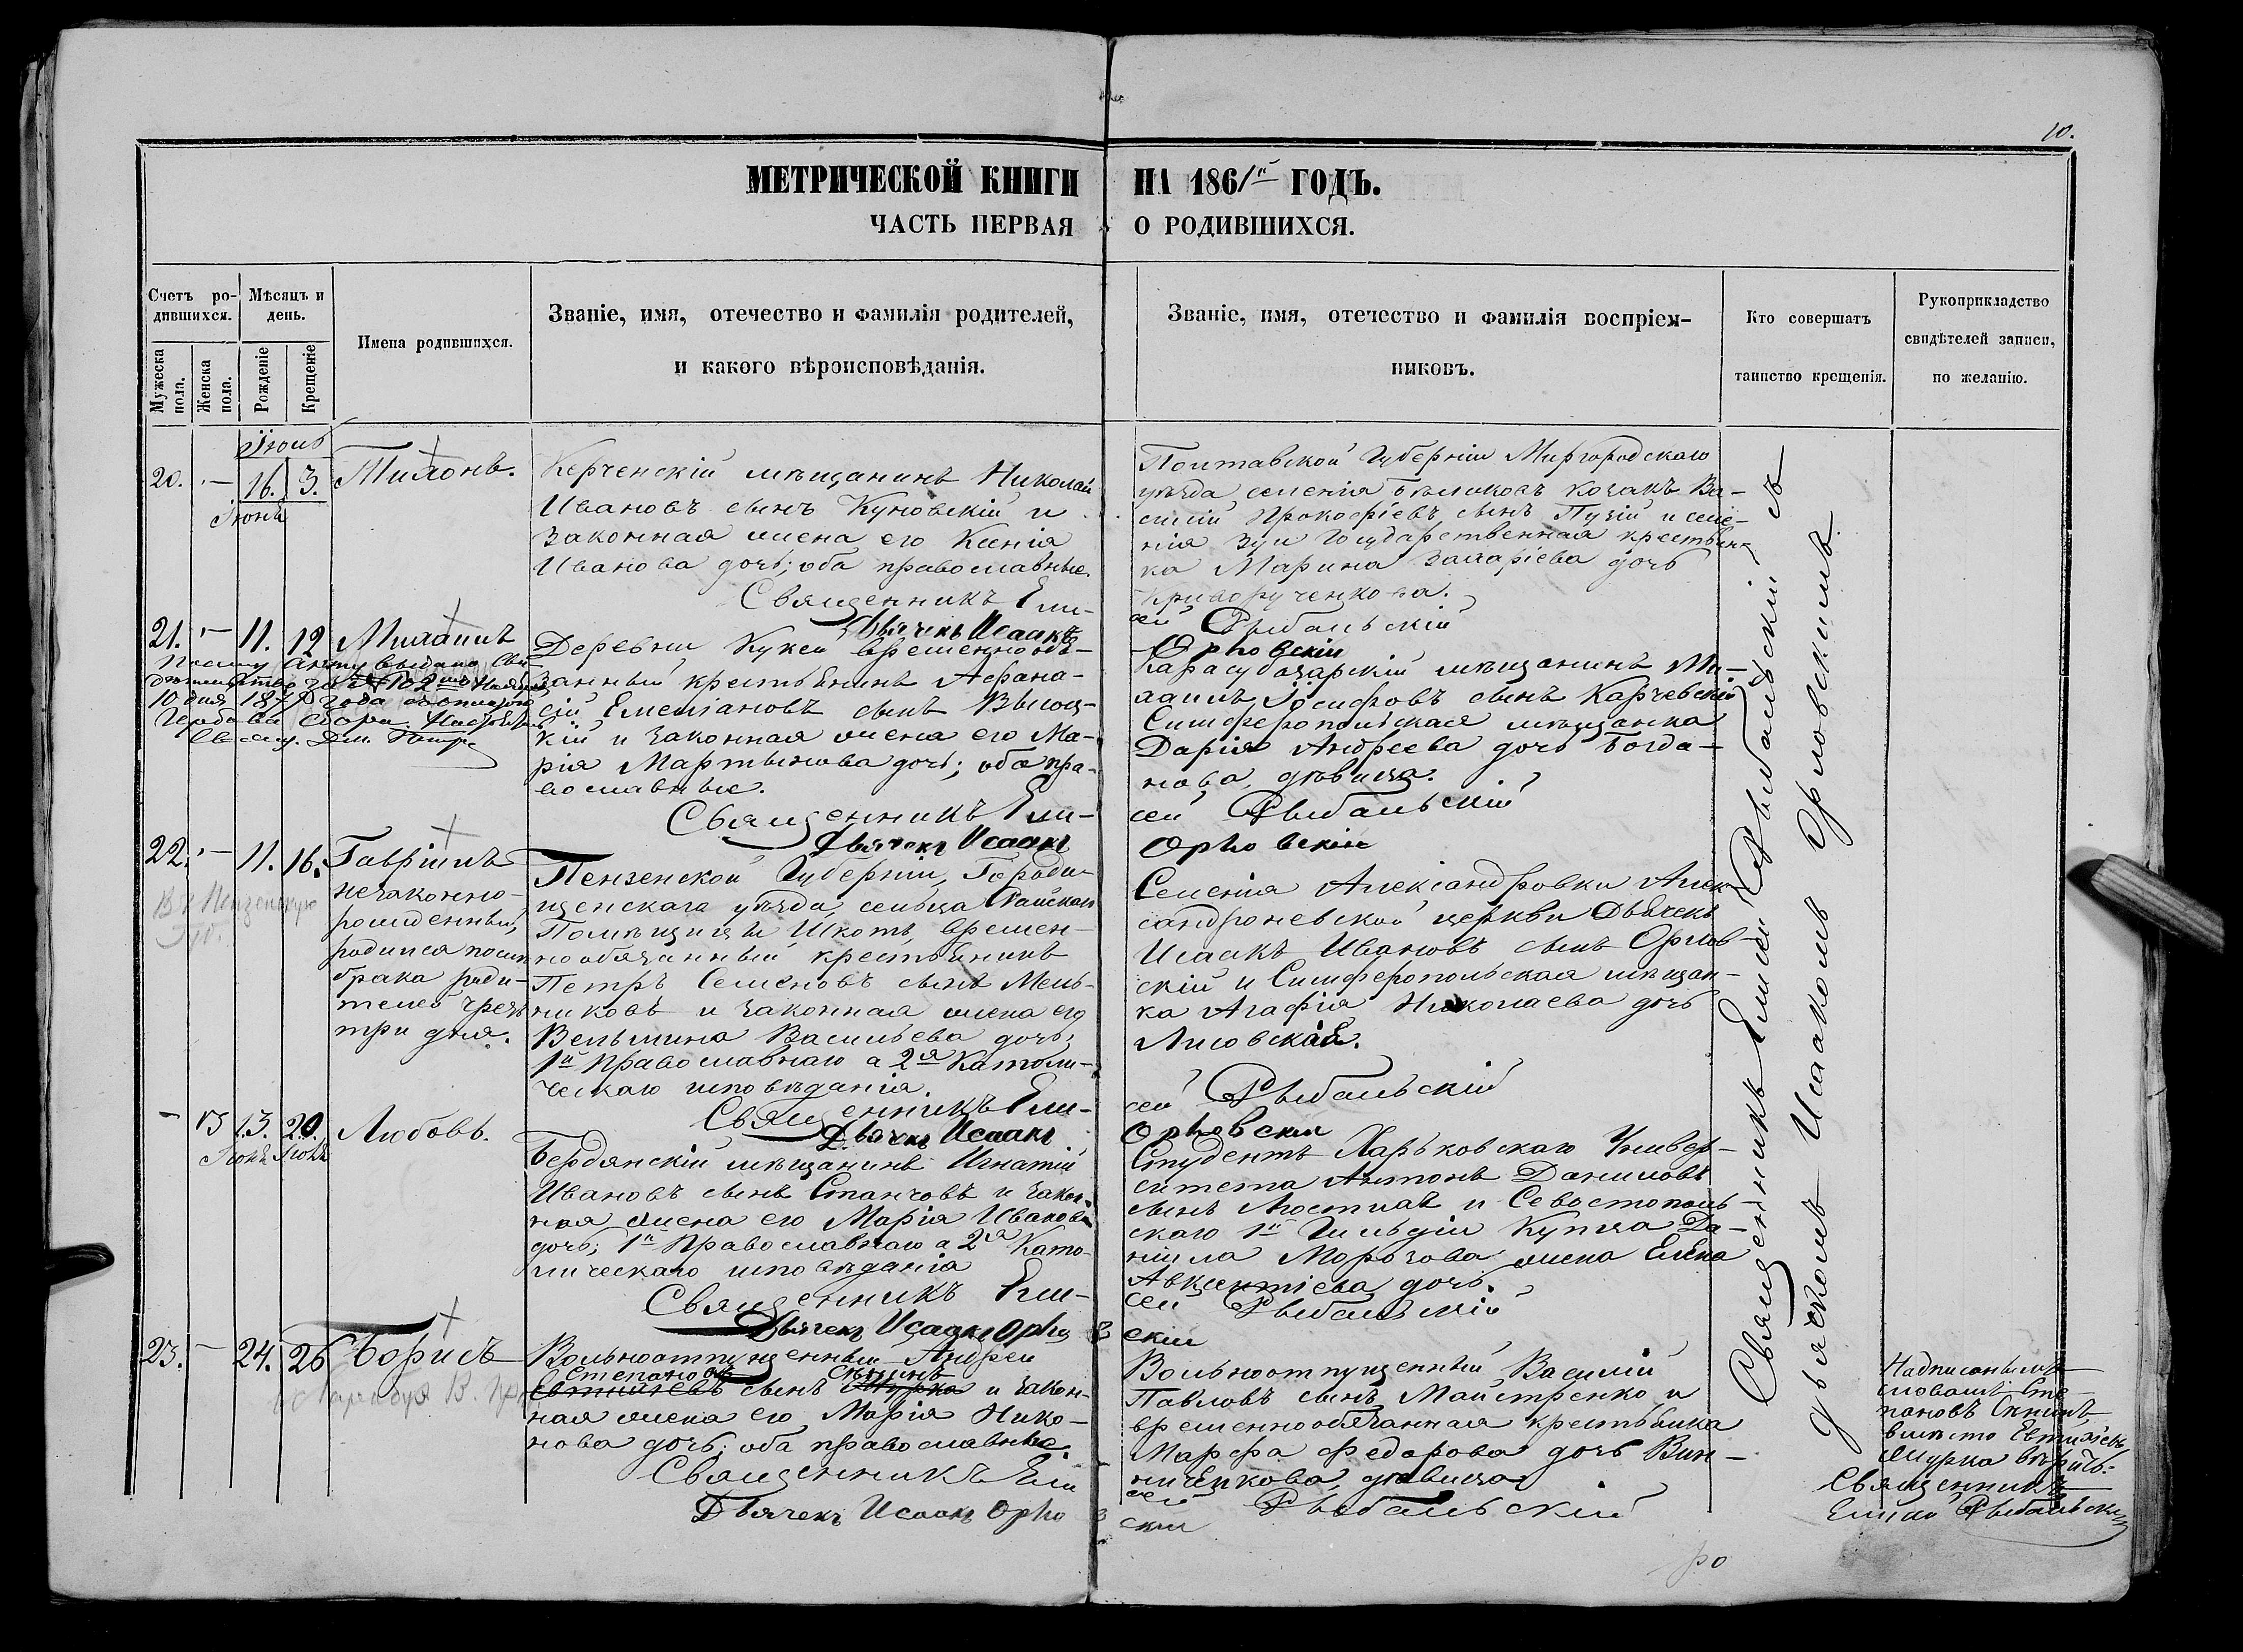 10.
МЕТРИЧЕСКОЙ КНИГИ НА 1861й ГОДЪ.
ЧАСТЬ ПЕРВАЯ О РОДИВШИХСЯ.
Счетъ ро-
дившихся.
Мужеска пола.
Женска пола.
Мѣсяцъ и день.
Рожденіе
Крещеніе
Имена родившихся.
Званіе, имя, отечество и фамилія родителей,
и какого вѣроисповѣданія.
Званіе, имя, отечество и фамилія воспріем-
никовъ.
Кто совершатъ
таинство крещенія.
Рукоприкладство
свидѣтелей записи,
по желанію.
20. — 16. 3.
Июнѣ
Керченскій мѣщанинъ Николай
Ивановъ сынъ Куновскій и
законная жена его Ксенія
Иванова дочь; оба православные.
Священникъ Ели-
Дьячекъ Исаакъ
Полтавской Губерніи Миргородскаго
уѣзда, селенія Бѣликовъ козакъ Ва-
силій Прокофіевъ сынъ Пузій и селе-
нія Зуи Государственная крестьян-
ка Марина Захаріева дочь
Криворученкова.
сей Рыбальскій
Орловскій
21. — 11. 12 Михаилъ
По сему Акту выдано Сви-
дѣтельство за № 102
10 дня 187 года
Деревни Кукеи временнообя-
занный крестьянинъ Афана-
сій Емельяновъ сынъ Высоц-
кій и законная жена его Ма-
рія Мартынова дочь; оба пра-
вославные.
Священникъ Ели-
Дьячекъ Исаакъ
Карасубазарскій мѣщанинъ Ми-
хаилъ Іосифовъ сынъ Карчевскій
Симферопольская мѣщанка
Дарія Андреева дочь Богда-
нова, дѣвица.
сей Рыбальскій
Орловскій
22. — 11. 16. Гавріилъ
незаконно-
рожденный,
родился послѣ
брака роди-
телей чрезъ
три дня.
Въ Пензенскую
Губ.
Пензенской Губерніи, Городи-
щенскаго уѣзда, сельца
Помѣщицы Шкотъ, времен-
нообязанный крестьянинъ
Петръ Семеновъ сынъ Мель-
никовъ и законная жена его
Вельмина Васильева дочь;
1й Православнаго а 2я Католи-
ческаго исповѣданія.
Священникъ Ели-
Дьячекъ Исаакъ
Селенія Александровки Алек-
сандроневской церкви Дьячекъ
Исаакъ Ивановъ сынъ Орлов-
скій и Симферопольская мѣщан-
ка Агафія Николаева дочь
Лисовская.
сей Рыбальскій
Орловскій
— 13 13. 20. Любовь.
Июнѣ Июнѣ
Бердянскій мѣщанинъ Игнатій
Ивановъ сынъ Станчовъ и закон-
ная жена его Марія Иванова
дочь; 1й Православнаго а 2я Като-
лическаго исповѣданія
Священникъ Ели-
Дьячекъ Исаакъ Орлов
Студентъ Харьковскаго Универ-
ситета Антонъ Даниловъ
сынъ и Севостополь-
скаго 1й Гильдіи Купца Да-
ніила Морозова жена Елена
Авксентіева дочь.
сей Рыбальскій
скій
23. — 24. 26 Борисъ
Вольноотпущенный Андрей
Степановъ
Евтихіевъ сынъ Журка и закон-
ная жена его Марія Нико-
нова дочь; оба православные.
Священникъ Ели
Дьячекъ Исаакъ Орлов
Вольноотпущенный Василій
Павловъ сынъ Майстренко и
временнообязанная крестьянка
Марфа Федорова дочь Вин-
ниченкова, дѣвица
сей Рыбальскій
скій
Священникъ Елисей Рыбальскій съ
дьячкомъ Исаакомъ Орловскимъ.
Надписаннымъ
словамъ Сте-
пановъ
вмѣсто Евтихіевъ,
Журка вѣрить:
Священникъ
Елисей Рыбальскій